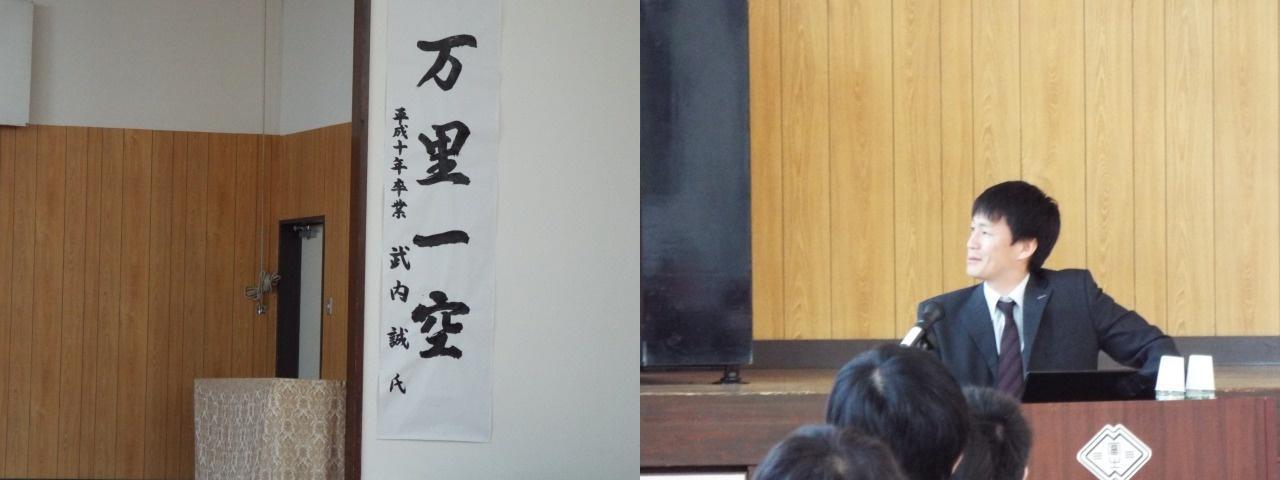 万里一空
平成十年卒業 武内誠氏